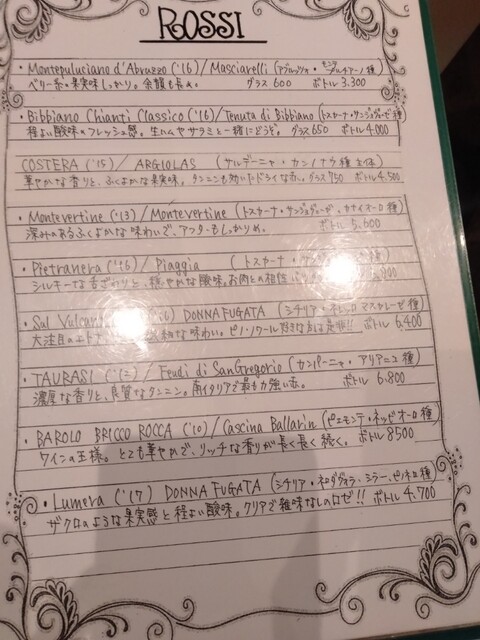 ROSSI
・Montepulciano d'Abruzzo ('16) / Masciarelli (アブルッツォ・モンテプルチアーノ種)
ベリー系・果実味しっかり。余韻も長め。 グラス 600 ボトル 3.300
・Bibbiano Chianti Classico ('16) / Tenuta di Bibbiano (トスカーナ・サンジョヴェーゼ種)
程よい酸味のフレッシュ感。生ハムやサラミと一緒にどうぞ。グラス 650 ボトル 4.000
COSTERA ('15) / ARGIOLAS (サルデーニャ・カンノナウ種主体)
華やかな香りと、ふくよかな果実味。タンニンも効いたドライな赤。グラス 750 ボトル 4.500
・Montevertine ('13) / Montevertine (トスカーナ・サンジョヴェーゼ、カナイオーロ種)
深みのあるふくよかな味わいで、アフターもしっかりめ。 ボトル 5.600
・Pietranera ('16) / Piaggia (トスカーナ・
シルキーな舌ざわりと、穏やかな酸味。お肉との相性
・Sul Vulcano DONNAFUGATA (シチリア・ネレッロ マスカレーゼ種)
大注目のエトナ 味わい。ピノ・ノワール好きな方は是非!! ボトル 6,400
・TAURASI ('12) / Feudi di SanGregorio (カンパーニャ・アリアニコ種)
濃厚な香りと、良質なタンニン。南イタリアで最も力強い赤。 ボトル 6.800
・BAROLO BRICCO ROCCA ('10) / Cascina Ballarin (ピエモンテ・ネッビオーロ種)
ワインの王様。とても華やかで、リッチな香りが長く長く続く。ボトル 8500
・Lumera ('17) DONNAFUGATA (シチリア・ネロダヴォラ・シラー、ピノネロ種)
ザクロのような果実感と程よい酸味。クリアで雑味なしのロゼ!! ボトル 4.700